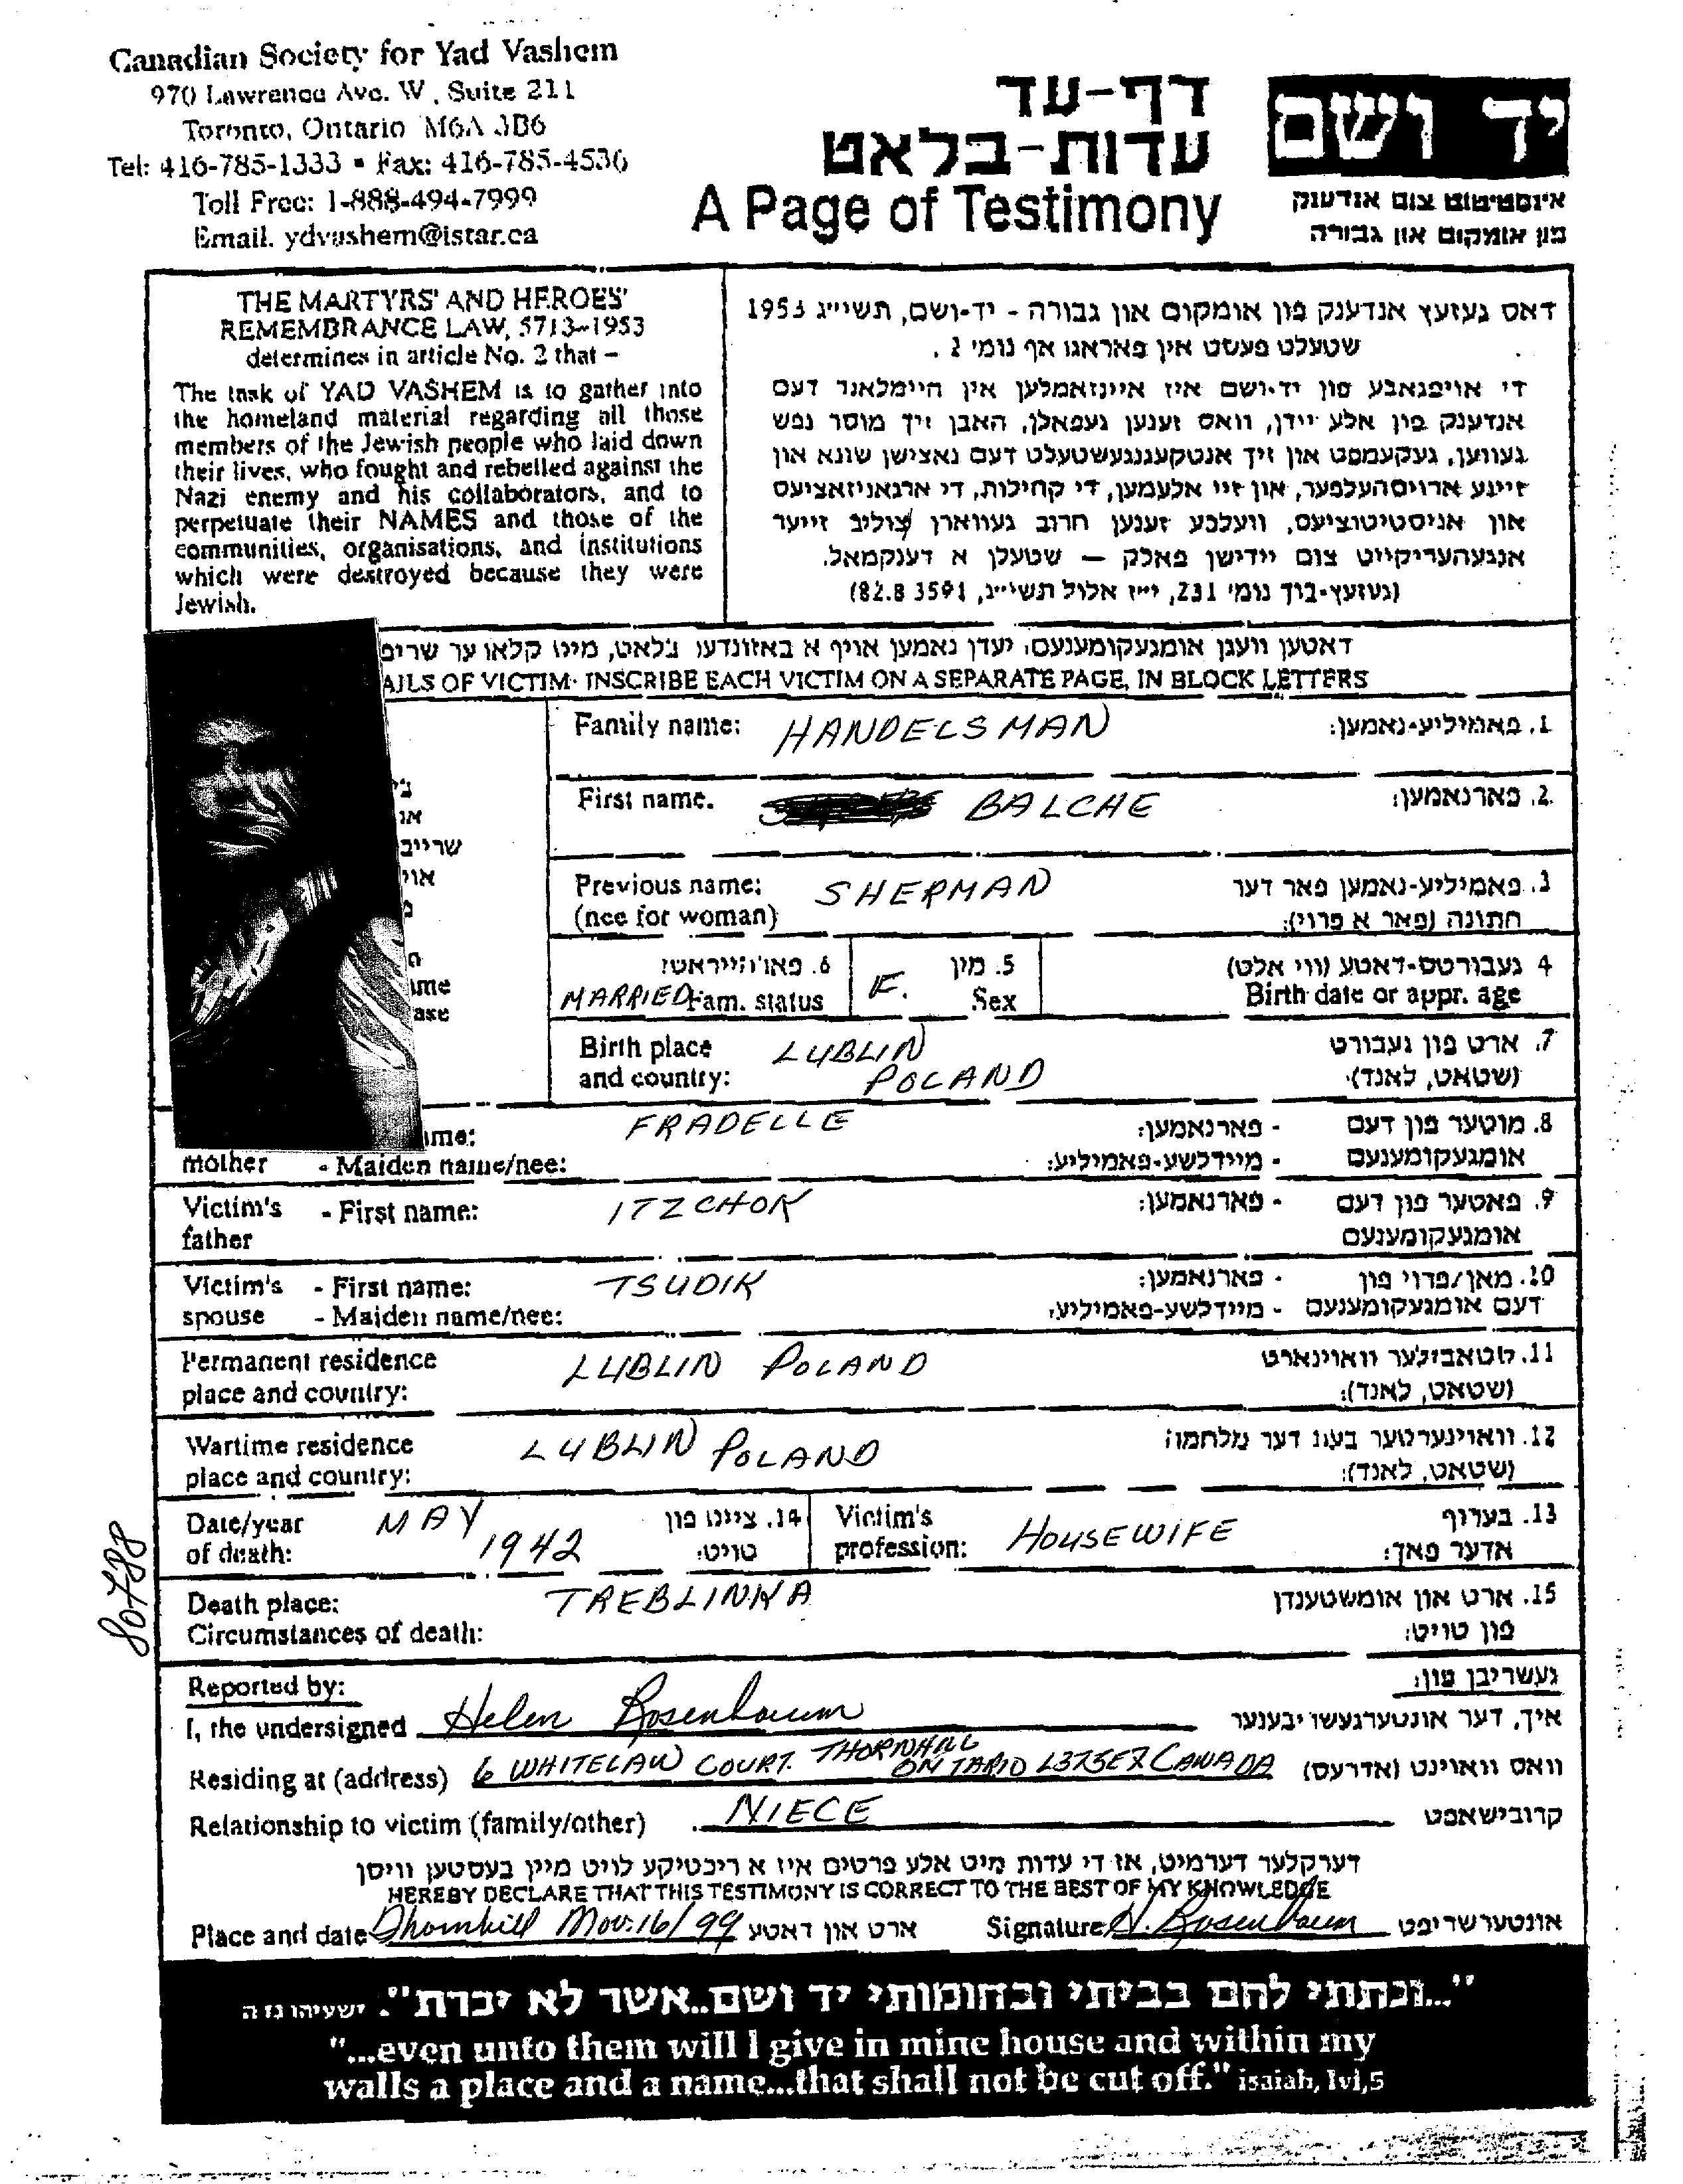 Canadian Society for Yad Vashem
970 Lawrence Ave. W, Suite 211
Toronto, Ontario M6A 3B6
Tel: 416-785-1333 • Fax: 416-785-4536
Toll Free: 1-888-494-7999
Email. ydvashem@istar.ca
דף-עד
עדות-בלאט
A Page of Testimony
יד ושם
אינסטיטוט צום אנדענק
פון אומקום און גבורה
THE MARTYRS' AND HEROES'
REMEMBRANCE LAW, 5713-1953
determines in article No. 2 that –
The task of YAD VASHEM is to gather into
the homeland material regarding all those
members of the Jewish people who laid down
their lives, who fought and rebelled against the
Nazi enemy and his collaborators, and to
perpetuate their NAMES and those of the
communities, organisations, and institutions
which were destroyed because they were
Jewish.
דאס געזעץ אנדענק פון אומקום און גבורה - יד-ושם, תשי״ג 1953
שטעלט פעסט אין פאראגראף נומ׳ 2.
די אויפגאבע פון יד-ושם איז איינזאמלען אין היימלאנד דעם
אנדענק פון אלע יידן, וואס זענען געפאלן, האבן זיך מוסר נפש
געווען, געקעמפט און זיך אנטקעגנגעשטעלט דעם נאצישן שונא און
זיינע ארויסהעלפער, און זיי אלעמען, די קהילות, די ארגאניזאציעס
און אניסטיטוציעס, וועלכע זענען חרוב געווארן צוליב זייער
אנגעהעריקייט צום יידישן פאלק — שטעלן א דענקמאל.
(געזעץ-בוך נומ׳ 132, י״ז אלול תשי״ג, 1953 28.8)
דאטען וועגן אומגעקומענעם: יעדן נאמען אויף א באזונדער בלאט, מיט קלאר שריפ
AILS OF VICTIM: INSCRIBE EACH VICTIM ON A SEPARATE PAGE, IN BLOCK LETTERS
שרייב
אוי
ame
ase
Family name: HANDELSMAN 1. פאמיליע-נאמען:
First name. BALCHE 2. פארנאמען:
Previous name: SHERMAN 3. פאמיליע-נאמען פאר דער
(nee for woman) חתונה (פאר א פרוי):
MARRIED Fam. status
F. 5. מין Sex
4 געבורטס-דאטע (ווי אלט)
Birth date or appr. age
Birth place LUBLIN 7. ארט פון געבורט
and country: POLAND (שטאט, לאנד):
ame: FRADELLE - פארנאמען: 8. מוטער פון דעם
mother - Maiden name/nee: - מיידלשע-פאמיליע: אומגעקומענעם
Victim's - First name: ITZCHOK - פארנאמען: 9. פאטער פון דעם
father אומגעקומענעם
Victim's - First name: TSUDIK - פארנאמען: 10. מאן/פרוי פון
spouse - Maiden name/nee: - מיידלשע-פאמיליע: דעם אומגעקומענעם
Permanent residence LUBLIN POLAND 11. סטאבילער וואוינארט
place and country: (שטאט, לאנד):
Wartime residence LUBLIN POLAND 12. וואוינערטער בעת דער מלחמה
place and country: (שטאט, לאנד):
Date/year MAY 14. צייט פון
of death: 1942 טויט:
Victim's 13. בערוף
profession: HOUSEWIFE אדער פאך:
Death place: TREBLINKA 15. ארט און אומשטענדן
Circumstances of death: פון טויט:
80788
Reported by: געשריבן פון:
I, the undersigned Helen Rosenbaum איך, דער אונטערגעשריבענער
Residing at (address) 6 WHITELAW COURT. THORNHILL ONTARIO L3T5E7 CANADA וואס וואוינט (אדרעס)
Relationship to victim (family/other) NIECE קרובישאפט
דערקלער דערמיט, אז די עדות מיט אלע פרטים איז א ריכטיקע לויט מיין בעסטען וויסן
HEREBY DECLARE THAT THIS TESTIMONY IS CORRECT TO THE BEST OF MY KNOWLEDGE
Place and date Thornhill Nov. 16/99 ארט און דאטע Signature H. Rosenbaum אונטערשריפט
"...ונתתי להם בביתי ובחומותי יד ושם..אשר לא יכרת". ישעיהו נו ה
"...even unto them will I give in mine house and within my
walls a place and a name...that shall not be cut off." isaiah, lvi,5